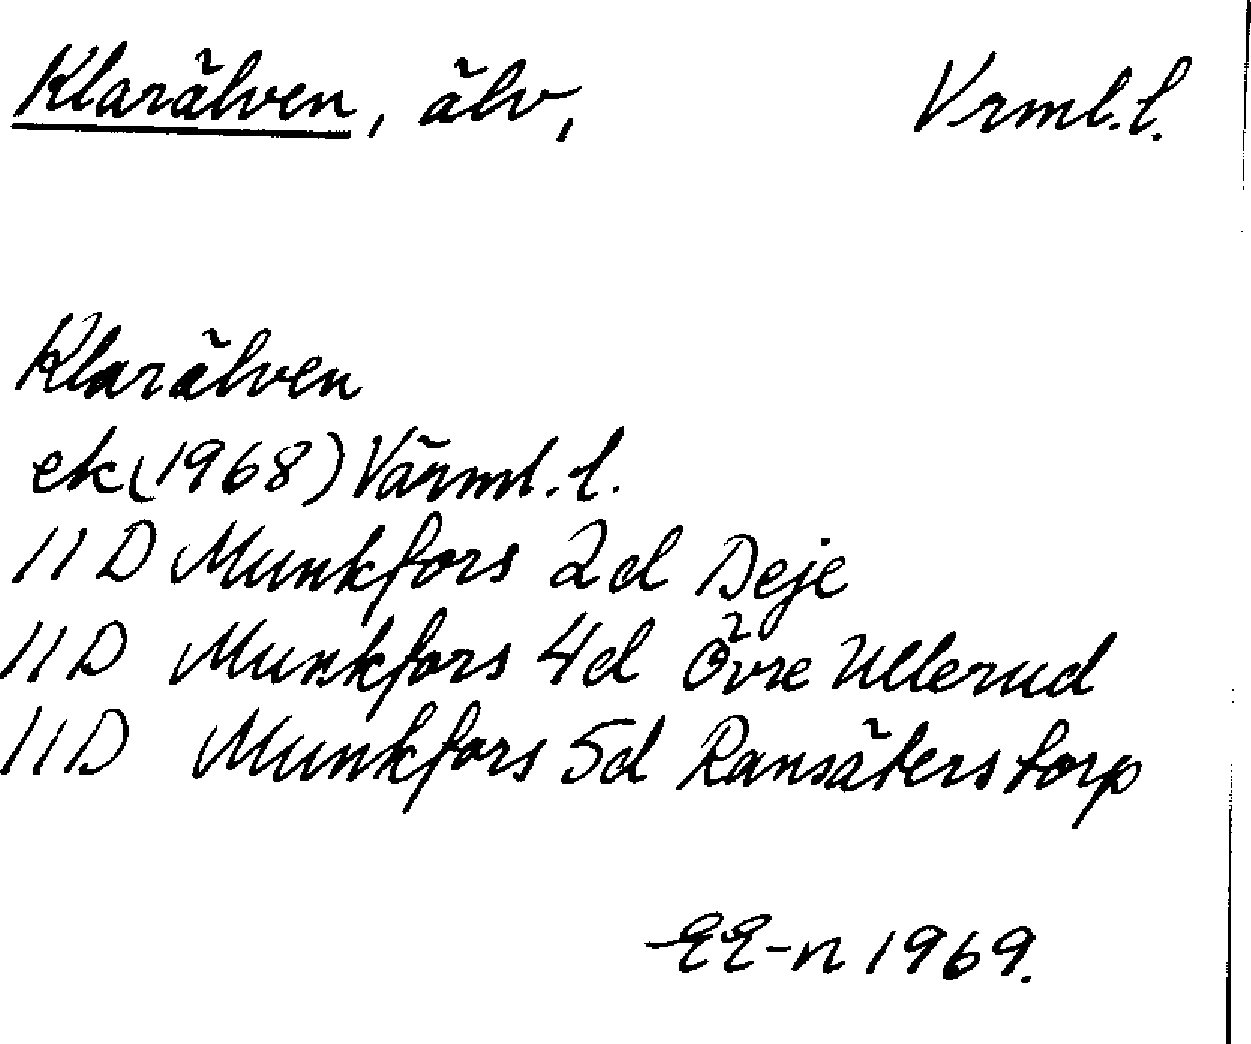 Klarälven, älv, Vrml. l.
Klarälven
ek (1968) Värml. l.
11D Munkfors 2d Deje
11D Munkfors 4d Övre Ullerud
11D Munkfors 5d Ransäterstorp
EE-n 1969.